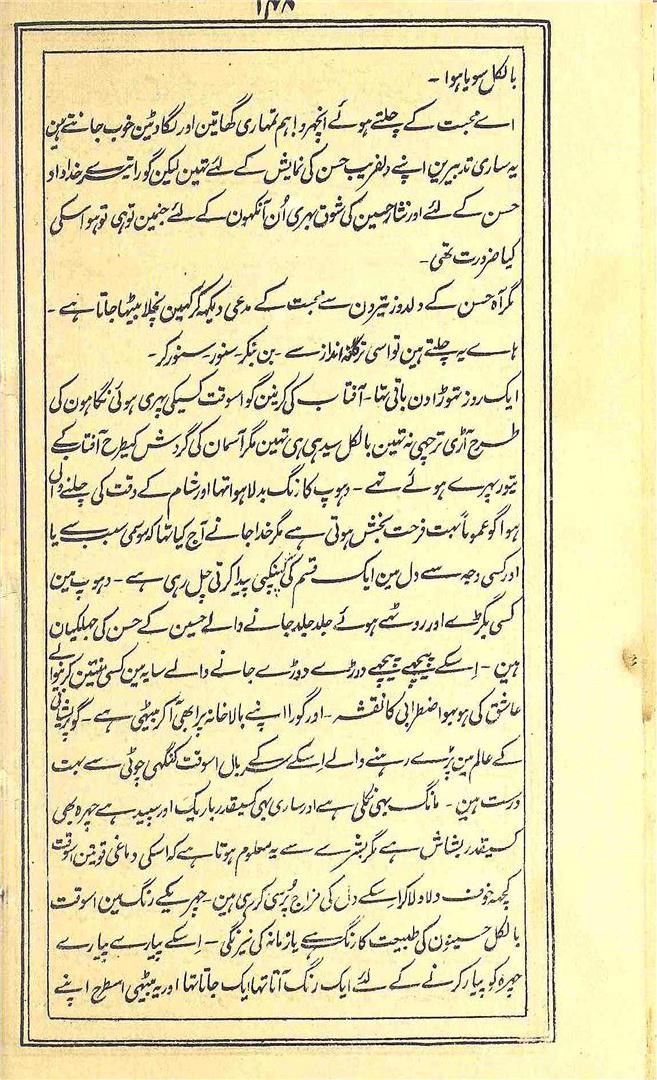 ۱۴۸
بالکل سویا ہوا ۔
اے محبت کے چلتے ہوئے انچھرو! ہم تمہاری گھاتین اور لگاوٹین خوب جانتے ہین
یہ ساری تدبیرین اپنے دلفریب حسن کی نمایش کے لئے تہین لیکن گورا تیرے خداداد
حسن کے لئے اور نثار حسین کی شوق بہری اُن آنکہون کے لئے جنمین توہی تو ہو اسکی
کیا ضرورت تھی ۔
مگر آہ حسن کے دلدوز تیرون سے محبت کے مدعی دیکہہ کر کہین نچلا بیٹہا جاتا ہے ۔
ہاے یہ چلتے ہین تو اسی ترکانہ انداز سے ۔ بن بنکر ۔ سنور ۔ سنور کر ۔
ایک روز تہوڑا دن باقی تہا ۔ آفتاب کی کرنین گو اسوقت کسیکی پہری ہوئی نگاہون کی
طرح آڑی ترچہی نہ تہین بالکل سیدہی ہی تہین مگر آسمان کی گردش کیطرح آفتاب کے
تیور پہرے ہوئے تہے ۔ دہوپ کا رنگ بدلا ہوا تہا اور شام کے وقت کی چلنے والی
ہوا گو عموماً بہت فرحت بخش ہوتی ہے مگر خدا جانے آج کیا تہا کہ موسمی سبب سے یا
اور کسی وجہ سے دل مین ایک قسم کی کپکپی پیدا کرتی چل رہی ہے ۔ دہوپ مین
کسی بگڑے اور روٹہے ہوئے جلد جلد جانے والے حسین کے حسن کی جہلکیان
ہین ۔ اِسکے پیچہے پیچہے دوڑے دوڑے جانے والے سایہ مین کسی منتین کرنیوالے
عاشق کی ہو بہو اضطرابی کا نقشہ ۔ اور گورا اپنے بالاخانہ پر ابھی آکر بیٹہی ہے ۔ گو پریشانی
کے عالم مین پڑے رہنے والے اِسکے سر کے بال اسوقت کنگہی چوٹی سے بہت
درست ہین ۔ مانگ بہی نکلی ہے اور ساری بہی کسیقدر باریک اور سپید ہے چہرہ بھی
کسیقدر بشاش ہے مگر بشرے سے یہ معلوم ہوتا ہے کہ اسکی دماغی قوتین اسوقت
کچہہ خوف دلا دلا کر اسکے دل کی مزاج پُرسی کر رہی ہین ۔ چہریکے رنگ مین اسوقت
بالکل حسینون کی طبیعت کا رنگ ہے یا زمانہ کی نیرنگی ۔ اِسکے پیارے پیارے
چہرہ کو پیار کرنے کے لئے ایک رنگ آتا تہا ایک جاتا تہا اور یہ بیٹہی اسطرح اپنے